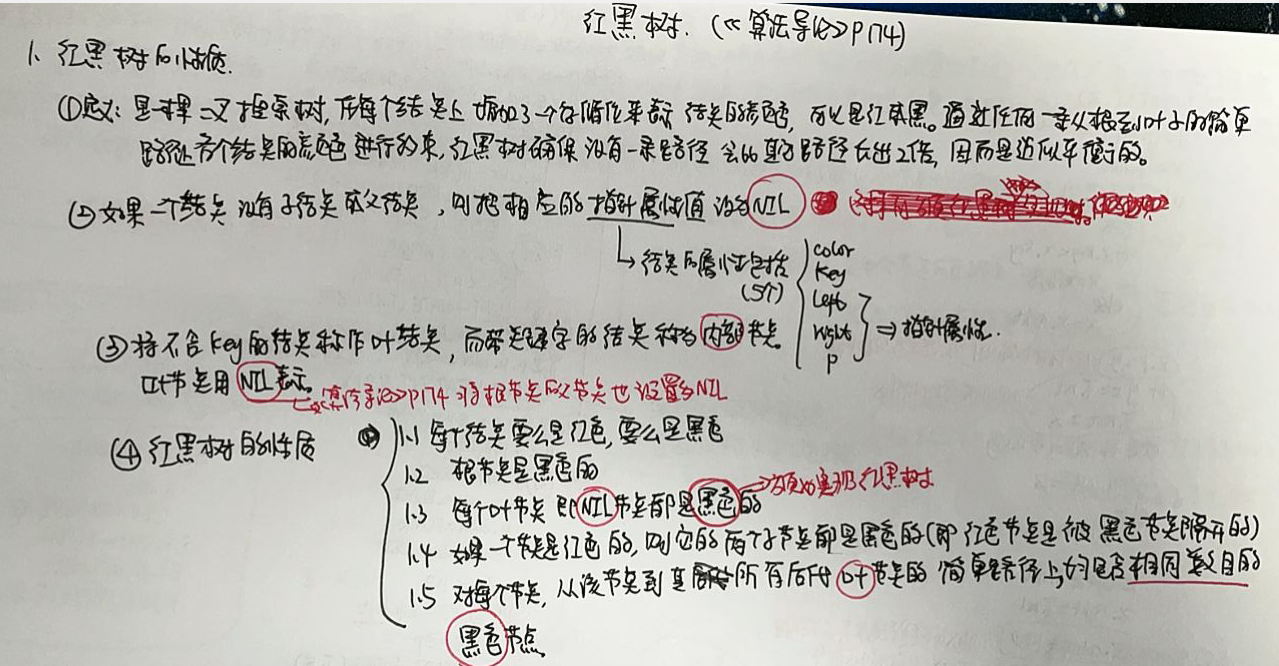 红黑树. (《算法导论》P174)
1. 红黑树的性质.
①定义: 是一棵二叉搜索树, 在每个结点上增加了一个存储位来表示结点的颜色, 可以是红或黑。通过任何一条从根到叶子的简单
路径上各个结点的颜色进行约束, 红黑树确保没有一条路径会比其他路径长出2倍, 因而是近似平衡的。
②如果一个结点没有子结点或父结点, 则把相应的指针属性值设为NIL
→结点的属性包括 color
(5个) key
left
right ⇒指针属性.
p
③将不含key的结点称作叶结点, 而带关键字的结点称为内部节点.
叶节点用NIL表示。
→《算法导论》P174 将根节点的父节点也设置为NIL
④红黑树的性质 1.1 每个结点要么是红色, 要么是黑色
1.2 根节点是黑色的
1.3 每个叶节点即NIL节点都是黑色的 →实现红黑树
1.4 如果一个节点是红色的, 则它的两个子节点都是黑色的(即红色节点是被黑色节点隔开的)
1.5 对每个节点, 从该节点到其所有后代叶节点的简单路径上, 均包含相同数目的
黑色节点.